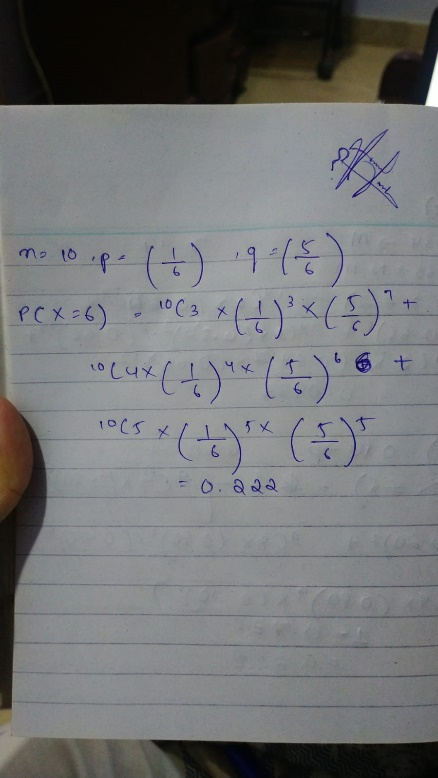 n = 10 , p = (1/6) , q = (5/6)
P(X=6) = ¹⁰C3 × (1/6)³ × (5/6)⁷ +
¹⁰C4 × (1/6)⁴ × (5/6)⁶ +
¹⁰C5 × (1/6)⁵ × (5/6)⁵
= 0.222